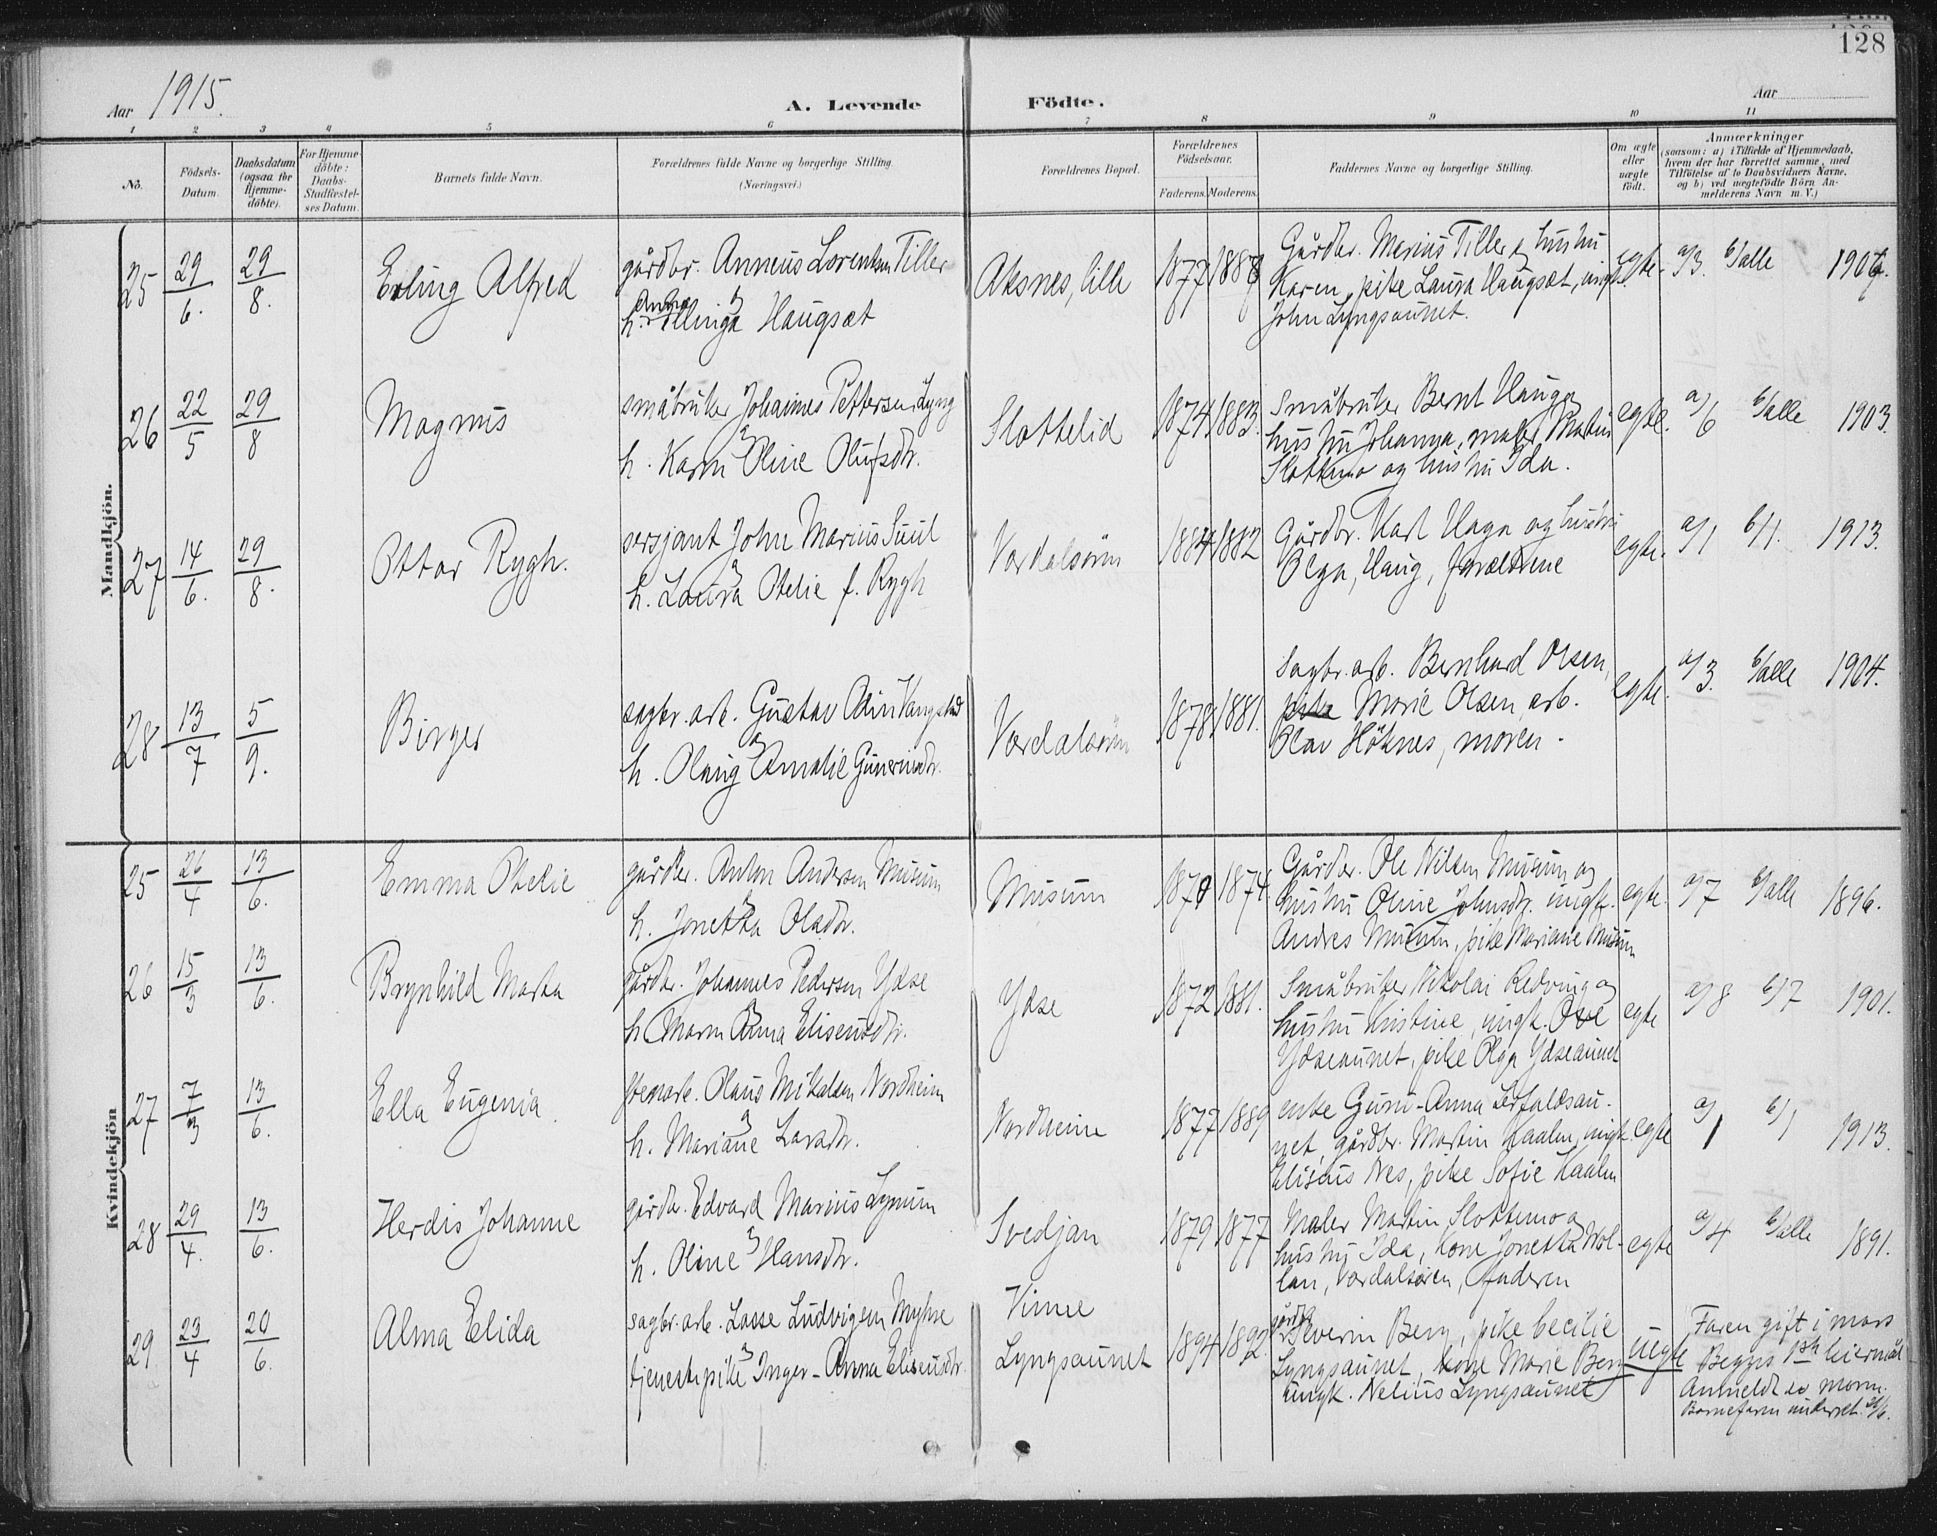 128
Aar 1915.
A. Levende Födte.
Aar
1 2 3 4 5 6 7 8 9 10 11
No.
Födsels-
Datum.
Daabsdatum
(ogsaa for
Hjemme-
döbte).
For Hjemme-
döbte:
Daabs-
Stadfæstel-
ses Datum.
Barnets fulde Navn.
Forældrenes fulde Navne og borgerlige Stilling.
(Næringsvei.)
Forældrenes Bopæl.
Forældrenes
Födselsaar.
Faderens. Moderens.
Faddernes Navne og borgerlige Stilling.
Om ægte
eller
uægte
födt.
Anmærkninger
(saasom: a) i Tilfælde af Hjemmedaab,
hvem der har forrettet samme, med
Tilföielse af to Daabsvidners Navne,
og b) ved uægtefödte Börn An-
melderens Navn m. V.)
Mandkjön.
25 29/6. 29/8. Erling Alfred
gårdbr. Anneus Lorentsen Tiller
h. Anna Ellinga Haugsæt
Aksnes, lille 1877 1888
Gårdbr. Marius Tiller og hustru
Karen, pike Laura Haugsæt, ungk.
John Lyngsaunet.
egte. a/3. b/alle 1907.
26 22/5 29/8 Magnus
småbruker Johannes Pettersen Lyng
h. Karen Oline Olufsdr.
Slottelid 1874 1883.
Småbruker Bernt Hauga
hustru Johanna, maler Martin
Slottemo og hustru Ida.
egte. a/6 b/alle 1903.
27 14/6. 29/8. Ottar Rygh.
sersjant John Marius Suul
h. Laura Otelie f. Rygh
Værdalsören 1884 1882
Gårdbr. Karl Haga og hustru
Olga, Haug, forældrene
egte. a/1 b/1. 1913.
28 13/7 5/9. Birger
sagbr. arb. Gustav Odin Vangstad
h. Olaug Amalie Guneriusdr.
Værdalsören 1878 1881.
Sagbr. arb. Bernhard Olsen,
pike Marie Olsen, arb.
Olav Höknes, moren.
egte. a/3. b/alle 1904.
Kvindekjön
25 26/4 13/6. Emma Otelie
gårdbr. Anton Andersen Musum
h. Jonetta Olsdr.
Musum 1870 1874.
Gårdbr. Ole Nilsen Musum og
hustru Oline Johnsdr. ungk.
Andres Musum, pike Mariane Musum
egte. a/7 b/alle 1896.
26 15/3 13/6. Brynhild Marta
gårdbr. Johannes Pedersen Ydse
h. Maren Anna Eliseusdr.
Ydse 1872 1881.
Småbruker Nikolai Rödving og
hustru Kristine, ungk. Ove
Ydseaunet, pike Olga Ydseaunet
egte a/8 b/7 1901.
27 7/3 13/6. Ella Eugenia
stenarb. Olaus Mikalsen Nordheim
h. Mariane Larsdr.
Nordheim 1877 1889
enke Guru-Anna Leifaldsau-
net, gårdbr. Martin Kaalen, ungk.
Eliseus Nes, pike Sofie Kaalen
egte a/1 b/1 1913.
28 29/4. 13/6. Herdis Johanne
gårdbr. Edvard Marius Lynum
h. Oline Hansdr.
Svedjan 1879 1877
Maler Martin Slottemo og
hustru Ida, kone Jonetta Mol-
lan, Værdalsören, faderen
egte a/4 b/alle 1891.
29. 23/4 20/6. Alma Elida
sagbr. arb. Lasse Ludvigsen Myhre
tjenestepike Inger-Anna Eliseusdr.
Vinne
Lyngsaunet 1894 1892.
gårdbr. Severin Berg, pike Cecilie
Lyngsaunet, kone Marie Berg
ungk. Nelius Lyngsaunet
uegte
Faren gift i mars
Begges 1ste leiermål
Anmeldt av moren.
Barnefaren underret.